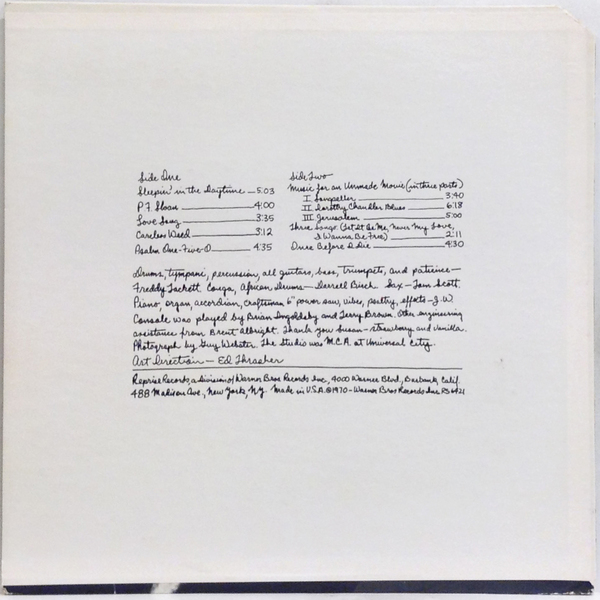 Side One
Sleepin' in the Daytime — 5:03
P.F. Sloan — 4:00
Love Song — 3:35
Careless Weed — 3:12
Psalm One-Five-O — 4:35
Side Two
Music for an Unmade Movie (in three parts)
I Songseller — 3:40
II Dorothy Chandler Blues — 6:18
III Jerusalem — 5:00
Three Songs (Let It Be Me, Never My Love,
I Wanna Be Free) — 2:11
Once Before I Die — 4:30
Drums, tympani, percussion, all guitars, bass, trumpets, and patience —
Freddy Tackett. Conga, African Drums — Darrell Birch. Sax — Tom Scott.
Piano, organ, accordian, craftsman 6" power saw, vibes, poetry, effects — J.W.
Console was played by Brian Ingoldsby and Terry Brown. Other engineering
assistance from Brent Albright. Thank you Susan — strawberry and vanilla.
Photograph by Guy Webster. The Studio was M.C.A. at Universal City.
Art Direction — Ed Thrasher
Reprise Records, a division of Warner Bros Records Inc., 4000 Warner Blvd., Burbank, Calif.
488 Madison Ave., New York, N.Y. Made in U.S.A. ©1970 — Warner Bros Records Inc. RS 6421